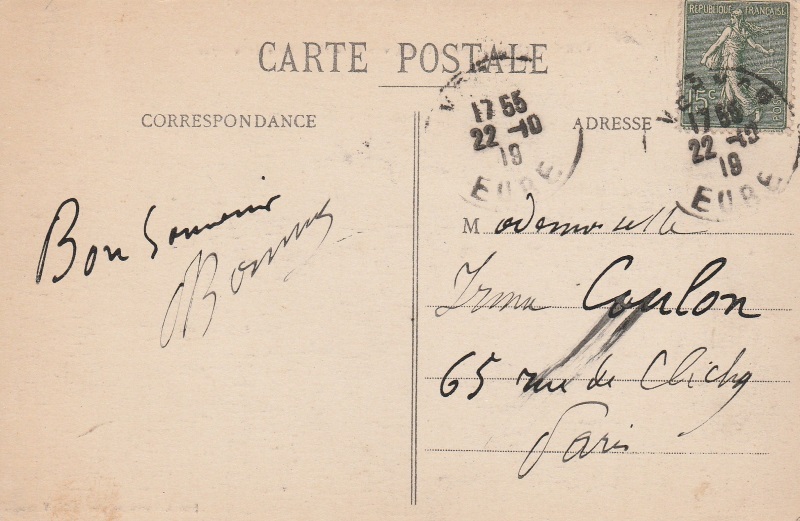 CARTE POSTALE
RÉPUBLIQUE FRANÇAISE
15c
CORRESPONDANCE
ADRESSE
17 55
22 -10
19
EURE
17 55
22 -10
19
EURE
Bon Souvenir
Mademoiselle
Irma Coulon
65 rue de Clichy
Paris